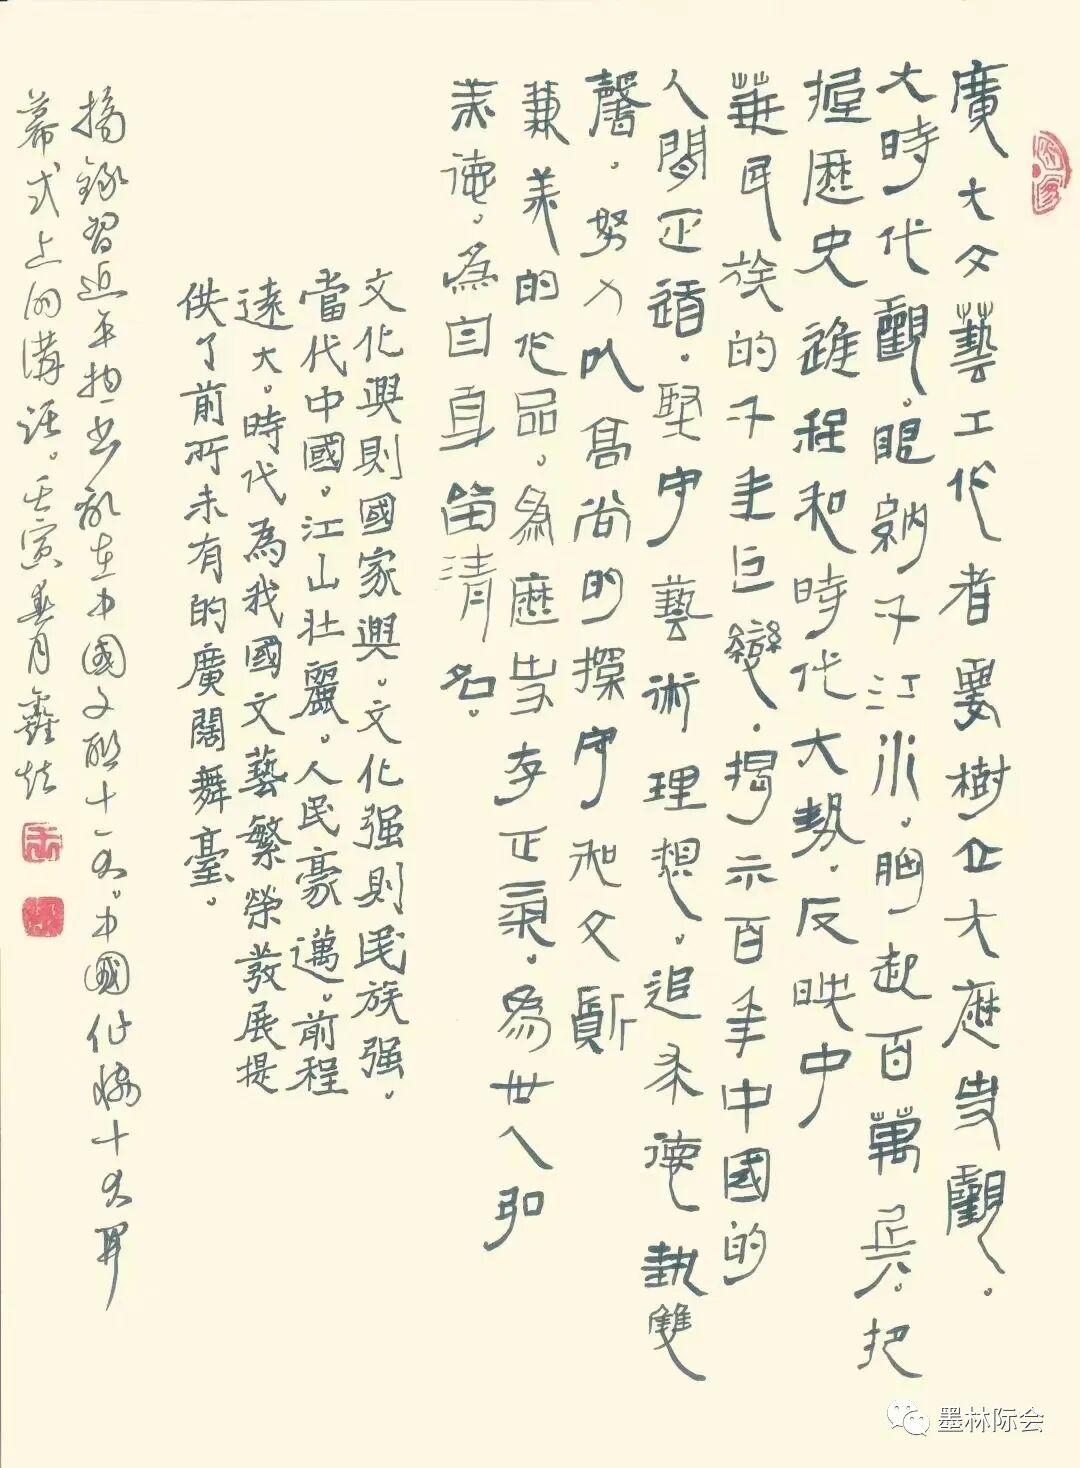 廣大文藝工作者要樹立大歷史觀。
大時代觀。眼納千江水。胸起百萬兵。把
握歷史進程和時代大勢。反映中
華民族的千年巨變。揭示百年中國的
人間正道。堅守藝術理想。追求德埶雙
馨。努力以高尚的操守和文質
兼美的作品。為歷史存正氣。為世人弘
美德。為自身留清名。
文化興則國家興。文化强則民族强。
當代中國。江山壯麗。人民豪邁。前程
遠大。時代為我國文藝繁榮發展提
供了前所未有的廣闊舞臺。
摘錄習近平總書記在中國文聯十一大。中國作協十大開
幕式上的講話。壬寅春月
墨林际会